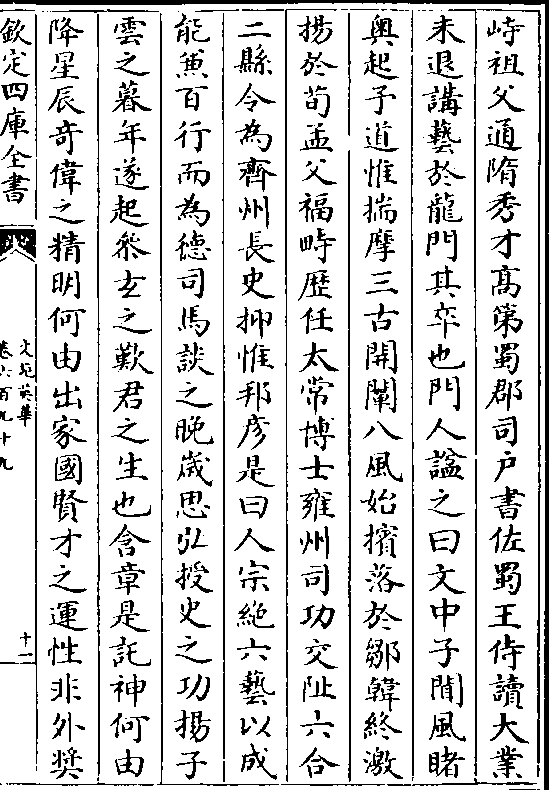 峙祖父通隋秀才髙第蜀郡司户書佐蜀王侍讀大業
未退講藝於龍門其卒也門人諡之曰文中子聞風睹
奥起予道惟揣摩三古開闡八風始擯落於鄒韓終激
揚於荀孟父福畤歴任太常博士雍州司功交阯六合
二縣令為齊州長史抑惟邦彦是曰人宗絶六藝以成
能兼百行而為徳司馬談之晚嵗思弘授史之功揚子
雲之暮年遂起參玄之歎君之生也含章是託神何由
降星辰竒偉之精明何由出家國賢才之運性非外奨
欽定四庫全書
文苑英華
卷六百九十九
十一